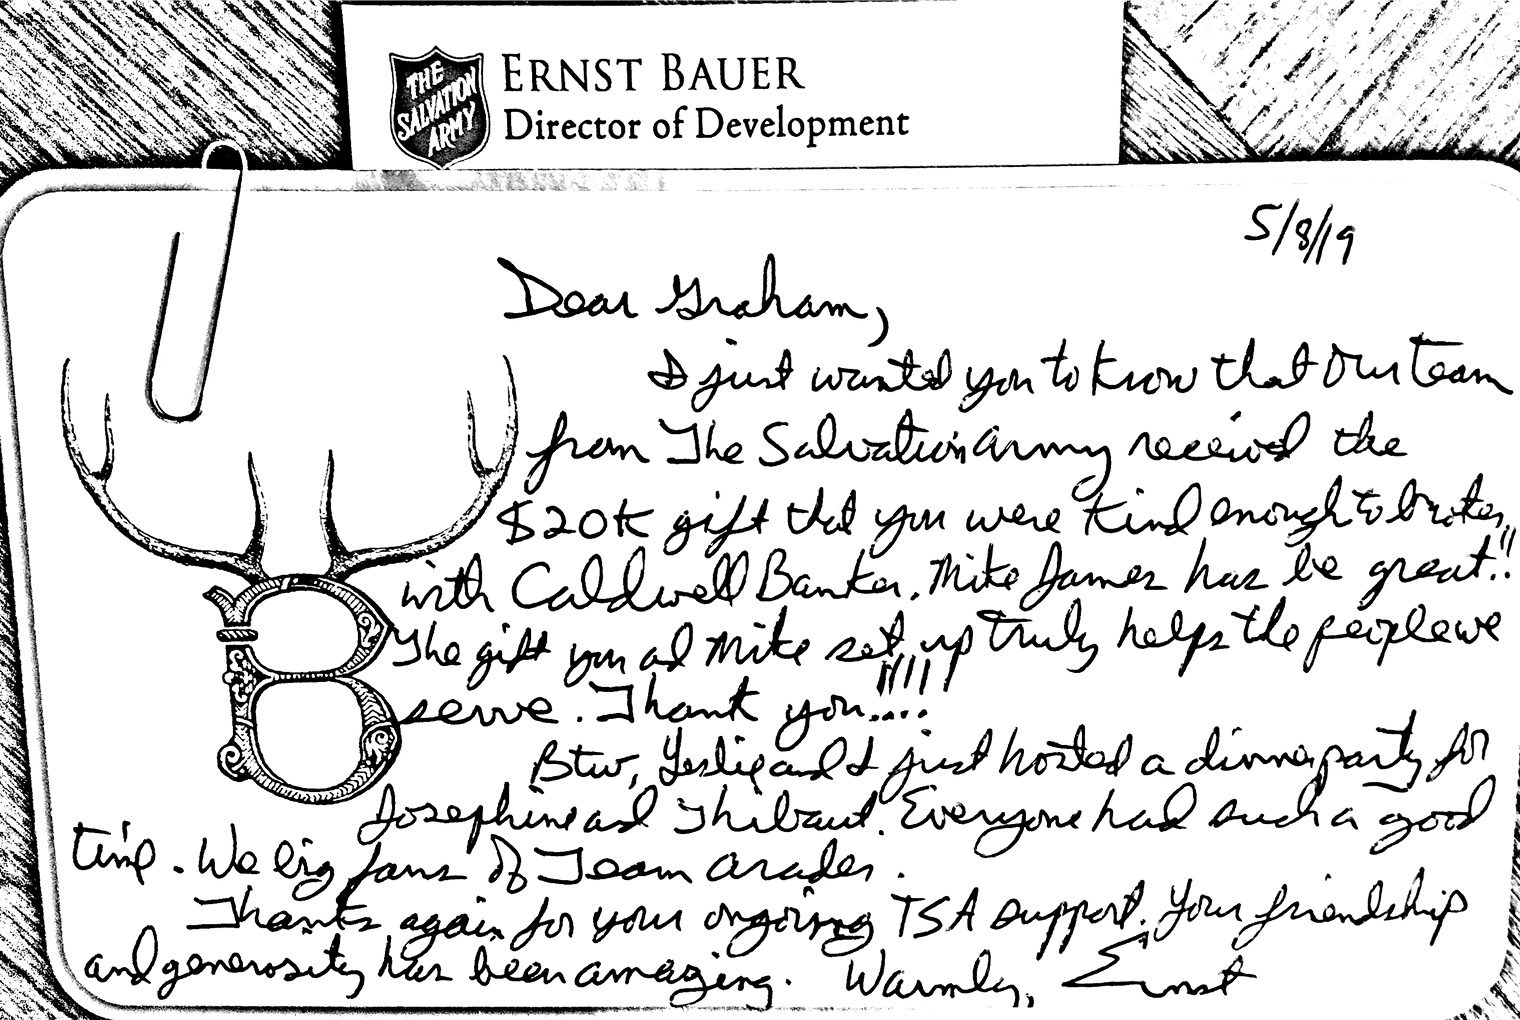 THE
SALVATION
ARMY
ERNST BAUER
Director of Development
5/8/19
Dear Graham,
I just wanted you to know that our team
from The Salvation Army received the
$20K gift that you were kind enough to broker
with Caldwell Banker. Mike James has be great!!
The gift you ad Mike set up truly helps the people we
serve. Thank you!!!!
Btw, Leslie and I just hosted a dinner party for
Josephine and Thibaut. Everyone had such a good
time. We big fans of Team
Thanks again for your ongoing TSA support. Your friendship
and generosity has been amazing. Warmly, Ernst
B